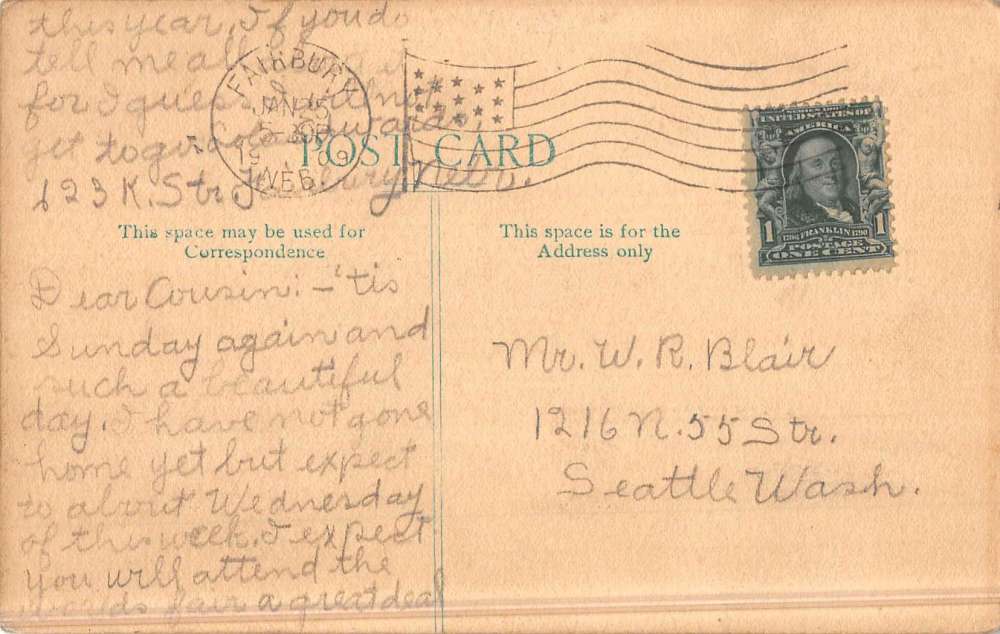 this year, If you do
tell me all
for I guess I will not
get to go.
123 K. Str. Fairbury, Nebr.
FAIRBURY
JAN 15
1909
NEB.
POST CARD
This space may be used for
Correspondence
This space is for the
Address only
UNITED STATES OF
AMERICA
1 FRANKLIN 1
POSTAGE
ONE CENT
Dear Cousin: – 'tis
Sunday again and
such a beautiful
day. I have not gone
home yet but expect
to about Wednesday
of this week. I expect
you will attend the
worlds fair a great deal
Mr. W. R. Blair
1216 N. 55 Str.
Seattle Wash.